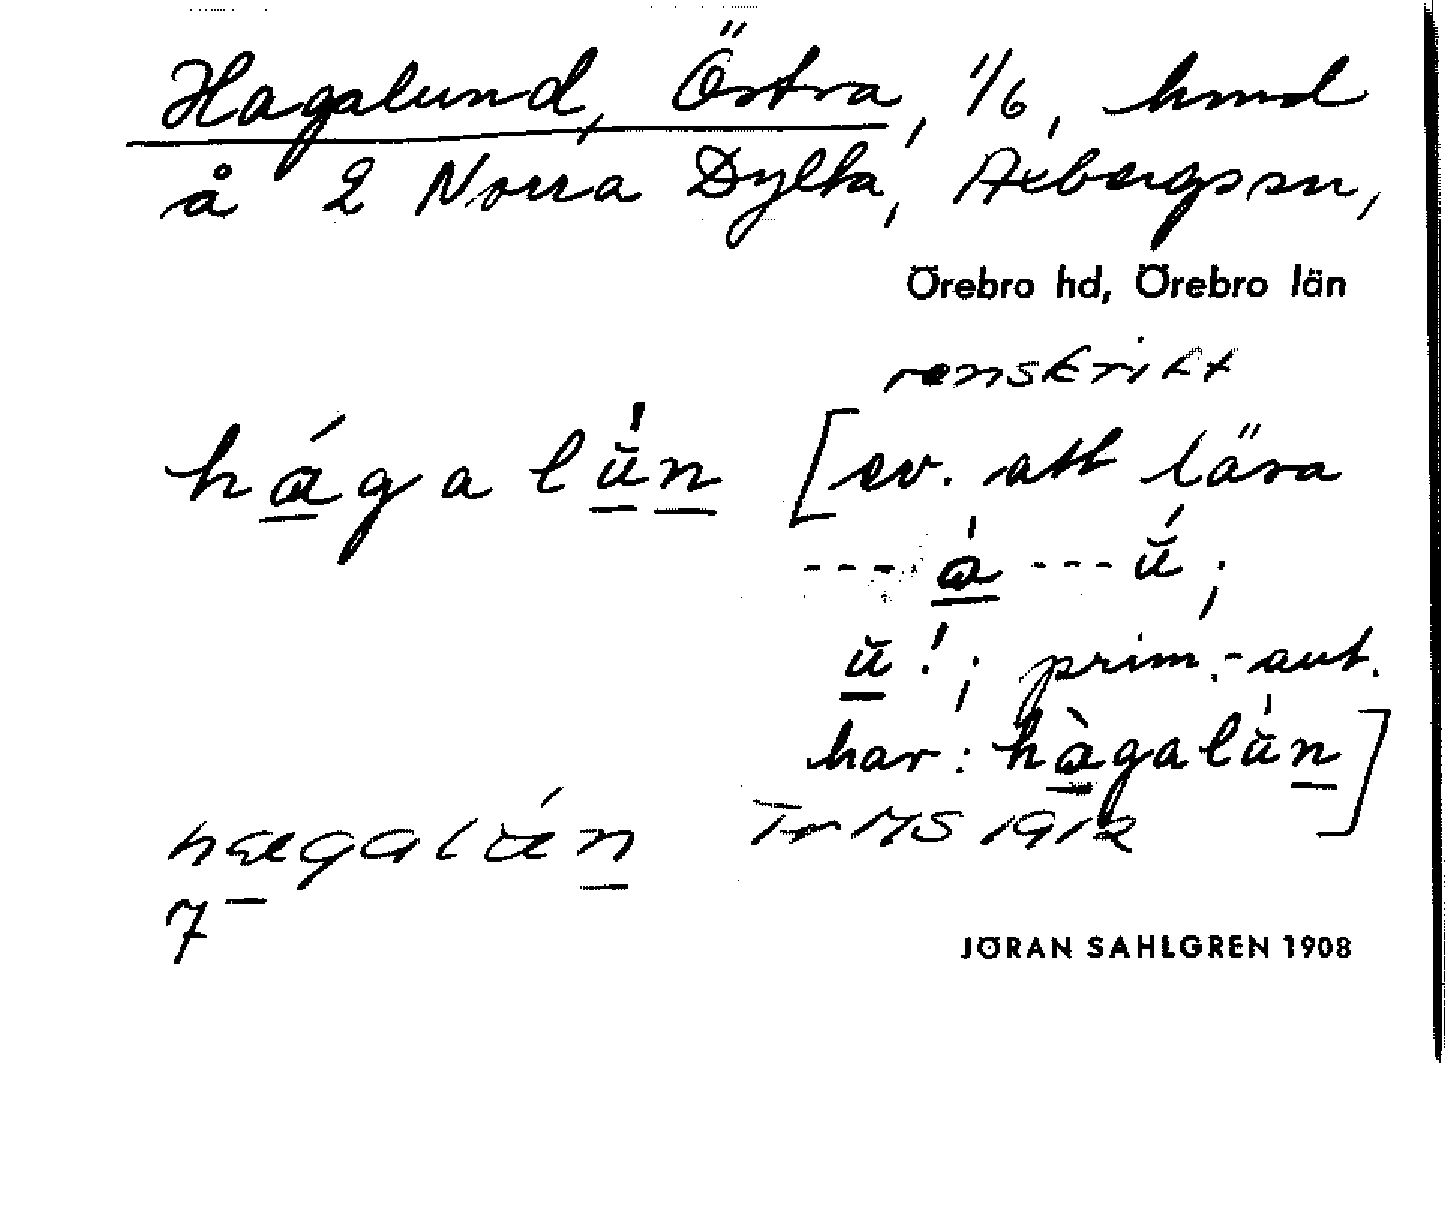 Hagalund, Östra, 1/6, hmd
å 2 Norra Dylta, Axbergs sn,
Örebro hd, Örebro län
renskrift
hágalŭ̍n [ev. att läsa
---á---ŭ́;
ŭ!; prim.-aut.
har: hàgalŭ̍n]
JÖRAN SAHLGREN 1908